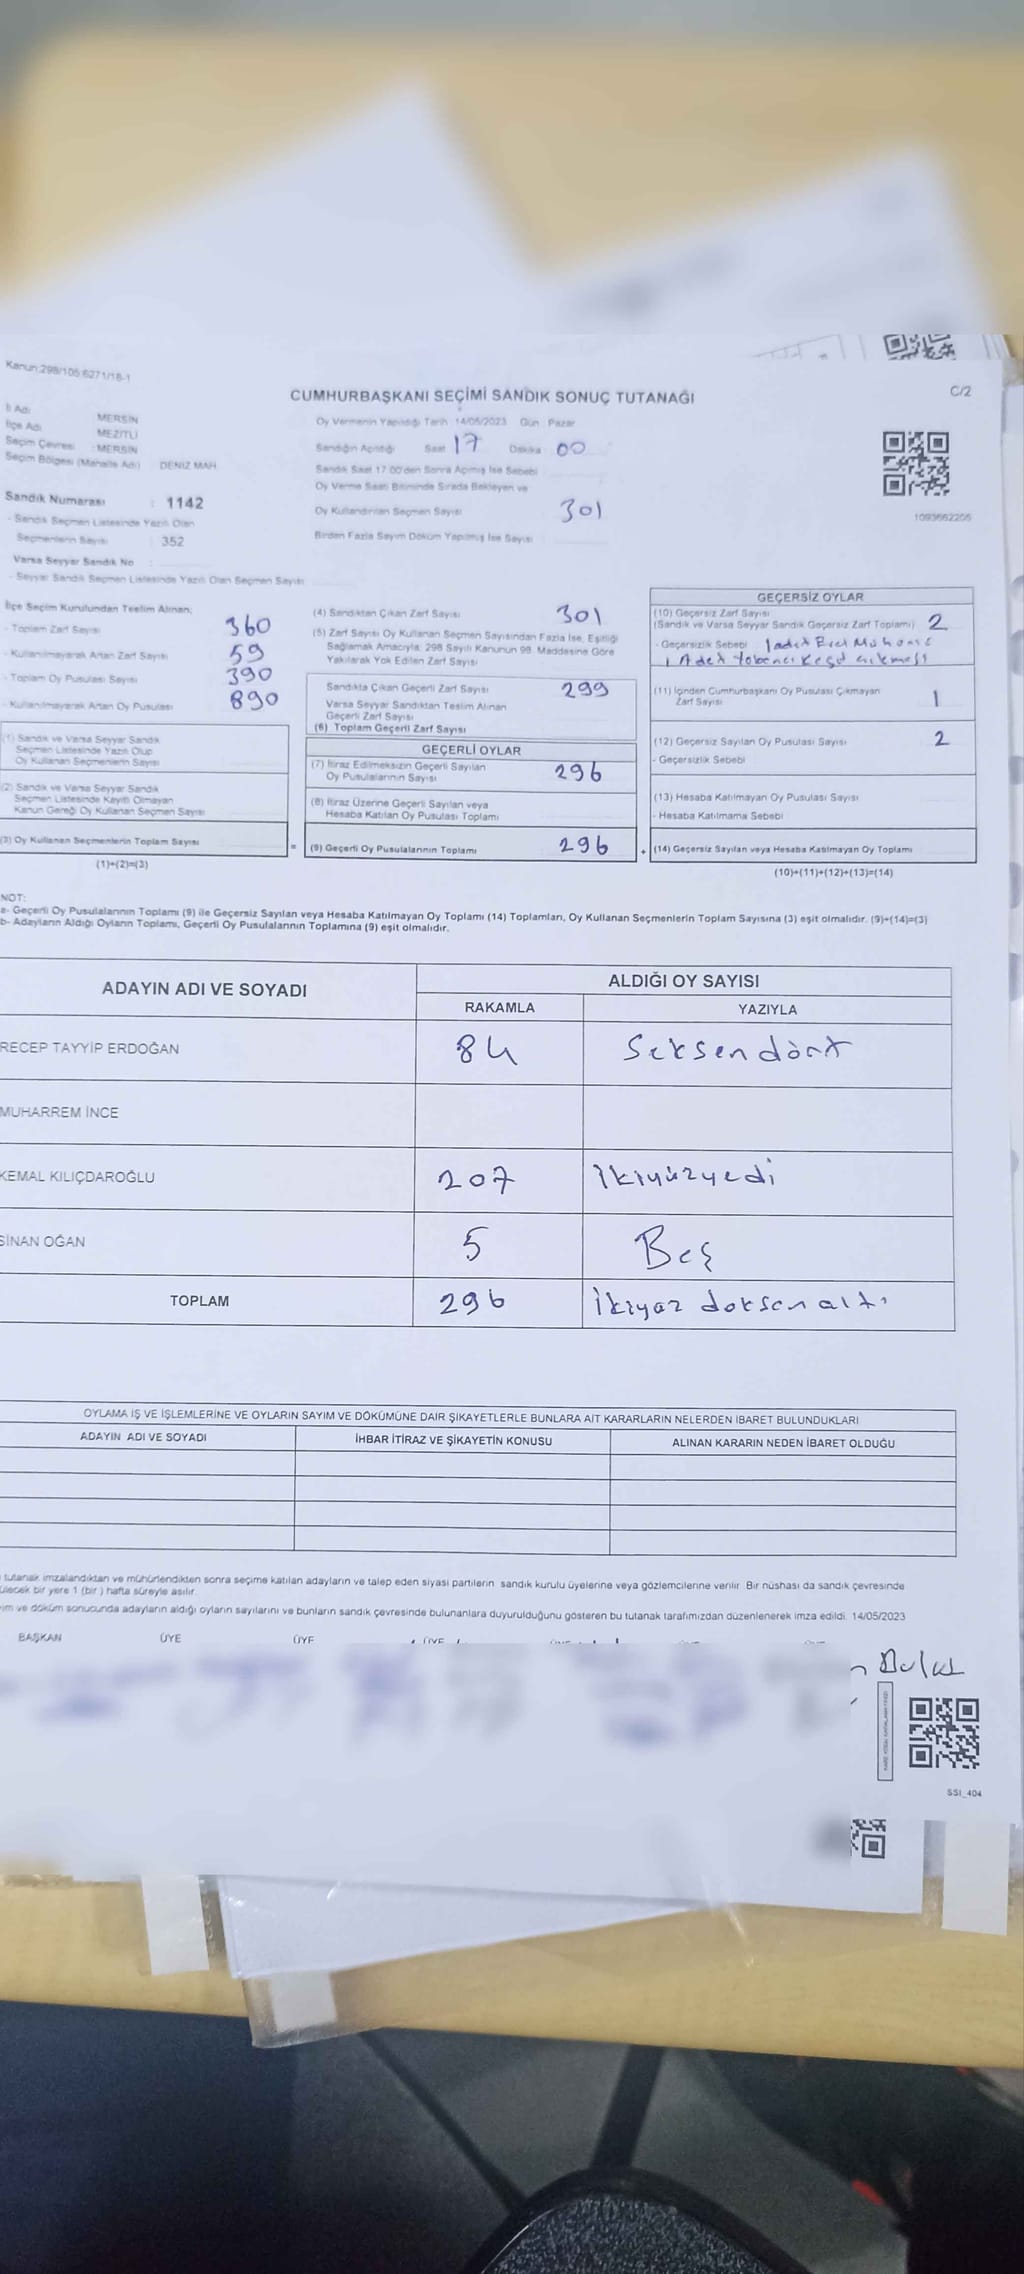 Kanun:298/105 6271/18-1
CUMHURBAŞKANI SEÇİMİ SANDIK SONUÇ TUTANAĞI
C/2
İl Adı MERSİN
İlçe Adı MEZİTLİ
Seçim Çevresi : MERSİN
Seçim Bölgesi (Mahalle Adı) DENİZ MAH.
Sandık Numarası : 1142
- Sandık Seçmen Listesinde Yazılı Olan
Seçmenlerin Sayısı : 352
Varsa Seyyar Sandık No
- Seyyar Sandık Seçmen Listesinde Yazılı Olan Seçmen Sayısı
Oy Vermenin Yapıldığı Tarih 14/05/2023 Gün Pazar
Sandığın Açıldığı Saat 17 Dakika 00
Sandık Saat 17.00'den Sonra Açılmış İse Sebebi
Oy Verme Saati Bitiminde Sırada Bekleyen ve
Oy Kullandırılan Seçmen Sayısı 301
Birden Fazla Sayım Döküm Yapılmış İse Sayısı
1093662206
İlçe Seçim Kurulundan Teslim Alınan;
- Toplam Zarf Sayısı 360
- Kullanılmayarak Artan Zarf Sayısı 59
- Toplam Oy Pusulası Sayısı 390
- Kullanılmayarak Artan Oy Pusulası 890
(1) Sandık ve Varsa Seyyar Sandık
Seçmen Listesinde Yazılı Olup
Oy Kullanan Seçmenlerin Sayısı
(2) Sandık ve Varsa Seyyar Sandık
Seçmen Listesinde Kayıtlı Olmayan
Kanun Gereği Oy Kullanan Seçmen Sayısı
(3) Oy Kullanan Seçmenlerin Toplam Sayısı
(1)+(2)=(3)
(4) Sandıktan Çıkan Zarf Sayısı 301
(5) Zarf Sayısı Oy Kullanan Seçmen Sayısından Fazla İse, Eşitliği
Sağlamak Amacıyla, 298 Sayılı Kanunun 98. Maddesine Göre
Yakılarak Yok Edilen Zarf Sayısı
Sandıkta Çıkan Geçerli Zarf Sayısı 299
Varsa Seyyar Sandıktan Teslim Alınan
Geçerli Zarf Sayısı
(6) Toplam Geçerli Zarf Sayısı
GEÇERLİ OYLAR
(7) İtiraz Edilmeksizin Geçerli Sayılan
Oy Pusulalarının Sayısı 296
(8) İtiraz Üzerine Geçerli Sayılan veya
Hesaba Katılan Oy Pusulası Toplamı
= (9) Geçerli Oy Pusulalarının Toplamı 296 +
GEÇERSİZ OYLAR
(10) Geçersiz Zarf Sayısı
(Sandık ve Varsa Seyyar Sandık Geçersiz Zarf Toplamı) 2
- Geçersizlik Sebebi 1 adet
1 Adet
(11) İçinden Cumhurbaşkanı Oy Pusulası Çıkmayan
Zarf Sayısı 1
(12) Geçersiz Sayılan Oy Pusulası Sayısı 2
- Geçersizlik Sebebi
(13) Hesaba Katılmayan Oy Pusulası Sayısı
- Hesaba Katılmama Sebebi
(14) Geçersiz Sayılan veya Hesaba Katılmayan Oy Toplamı
(10)+(11)+(12)+(13)=(14)
NOT:
a- Geçerli Oy Pusulalarının Toplamı (9) ile Geçersiz Sayılan veya Hesaba Katılmayan Oy Toplamı (14) Toplamları, Oy Kullanan Seçmenlerin Toplam Sayısına (3) eşit olmalıdır. (9)+(14)=(3)
b- Adayların Aldığı Oyların Toplamı, Geçerli Oy Pusulalarının Toplamına (9) eşit olmalıdır.
ADAYIN ADI VE SOYADI
ALDIĞI OY SAYISI
RAKAMLA YAZIYLA
RECEP TAYYİP ERDOĞAN 84 Seksendört
MUHARREM İNCE
KEMAL KILIÇDAROĞLU 207 İkiyüzyedi
SİNAN OĞAN 5 Beş
TOPLAM 296 İkiyüz doksan altı
OYLAMA İŞ VE İŞLEMLERİNE VE OYLARIN SAYIM VE DÖKÜMÜNE DAİR ŞİKAYETLERLE BUNLARA AİT KARARLARIN NELERDEN İBARET BULUNDUKLARI
ADAYIN ADI VE SOYADI İHBAR İTİRAZ VE ŞİKAYETİN KONUSU ALINAN KARARIN NEDEN İBARET OLDUĞU
tutanak imzalandıktan ve mühürlendikten sonra seçime katılan adayların ve talep eden siyasi partilerin sandık kurulu üyelerine veya gözlemcilerine verilir. Bir nüshası da sandık çevresinde
ülecek bir yere 1 (bir ) hafta süreyle asılır.
ım ve döküm sonucunda adayların aldığı oyların sayılarını ve bunların sandık çevresinde bulunanlara duyurulduğunu gösteren bu tutanak tarafımızdan düzenlenerek imza edildi. 14/05/2023
BAŞKAN ÜYE ÜYE ÜYE
SSI_404